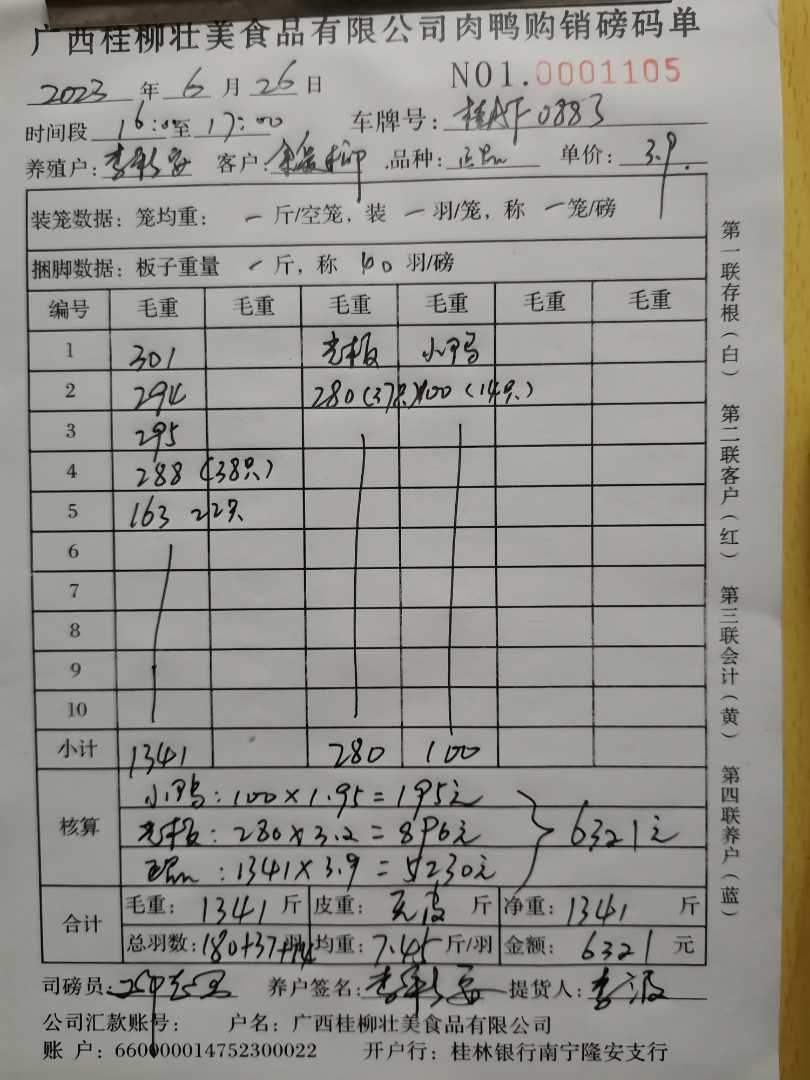 广西桂柳壮美食品有限公司肉鸭购销磅码单
2023年6月26日 NO1.0001105
时间段 16:00至17:00 车牌号:桂AF0883
养殖户: 客户: 品种:正品 单价:3.9.
装笼数据:笼均重: 一 斤/空笼,装 一 羽/笼,称 一 笼/磅
捆脚数据:板子重量 一 斤,称 40 羽/磅
编号 毛重 毛重 毛重 毛重 毛重 毛重
1 301 光板 小鸭
2 294 280(37只) 100(14只)
3 295
4 288 (38只)
5 163 22只
6
7
8
9
10
小计 1341 280 100
核算
小鸭:100×1.95=195元
光板:280×3.2=896元 6321元
正品:1341×3.9=5230元
合计
毛重:1341斤 皮重:无皮 斤 净重:1341 斤
总羽数:180+37+14羽 均重:7.45斤/羽 金额:6321元
司磅员: 养户签名: 提货人:李波
公司汇款账号: 户名:广西桂柳壮美食品有限公司
账 户:660000014752300022 开户行:桂林银行南宁隆安支行
第一联存根(白) 第二联客户(红) 第三联会计(黄) 第四联养户(蓝)